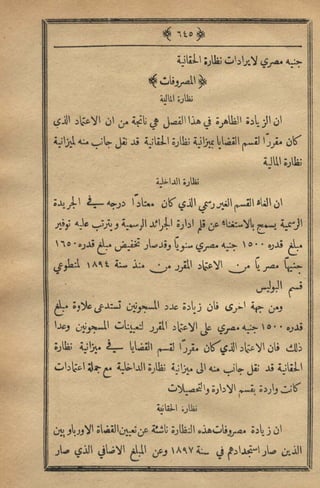 ﴿ ٦٤٥ ﴾
جنيه مصري لايرادات نظارة الحقانية
﴿ المصروفات ﴾
نظارة المالية
ان الزيادة الظاهرة في هذا الفصل هي ناتجة من ان الاعتماد الذي
كان مقررًا لقسم القضايا بميزانية نظارة الحقانية قد نقل جانب منه لميزانية
نظارة المالية
نظارة الداخلية
ان الغاء القسم الغير رسمي الذي كان معتادًا درجه في الجريدة
الرسمية يسمح بالاستغناء عن قلم ادارة الجرائد الرسمية و يترتب عليه توفير
مبلغ قدره ١٥٠٠ جنيه مصري سنويًا وقد صار تخفيض مبلغ قدره ١٦٥٠
جنيهًا مصريًا من الاعتماد المقرر من منذ سنة ١٨٩٤ لمتطوعي
قسم البوليس
ومن جهة اخرى فان زيادة عدد المسجونين تستدعى علاوة مبلغ
قدره ١٥٠٠ جنيه مصري على الاعتماد المقرر لتعيينات المسجونين وعدا
ذلك فان الاعتماد الذي كان مقررًا لقسم القضايا في ميزانية نظارة
الحقانية قد نقل جانب منه الى ميزانية نظارة الداخلية مع جملة اعتمادات
كانت واردة بقسم الادارة والتحصيلات
نظارة الحقانية
ان زيادة مصروفات هذه النظارة ناشئة عن تعيين القضاة الاورباويين
الذين صار استجدادهم في سنة ١٨٩٧ وعن المبلغ الاضافي الذي صار